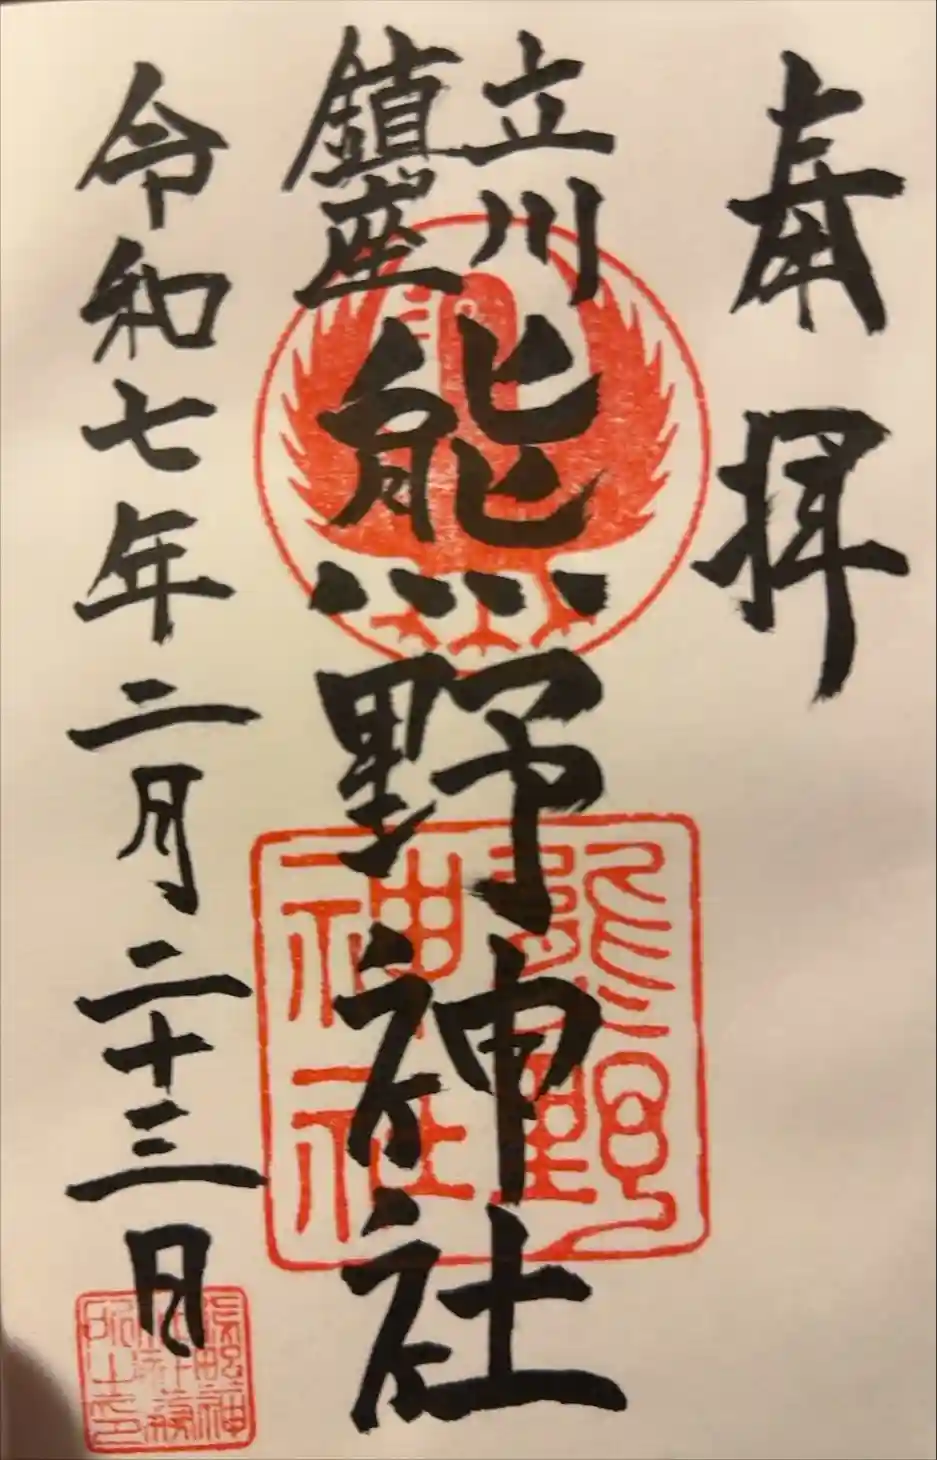 奉拝
立川
鎮座
熊野神社
令和七年二月二十三日
熊野
神社